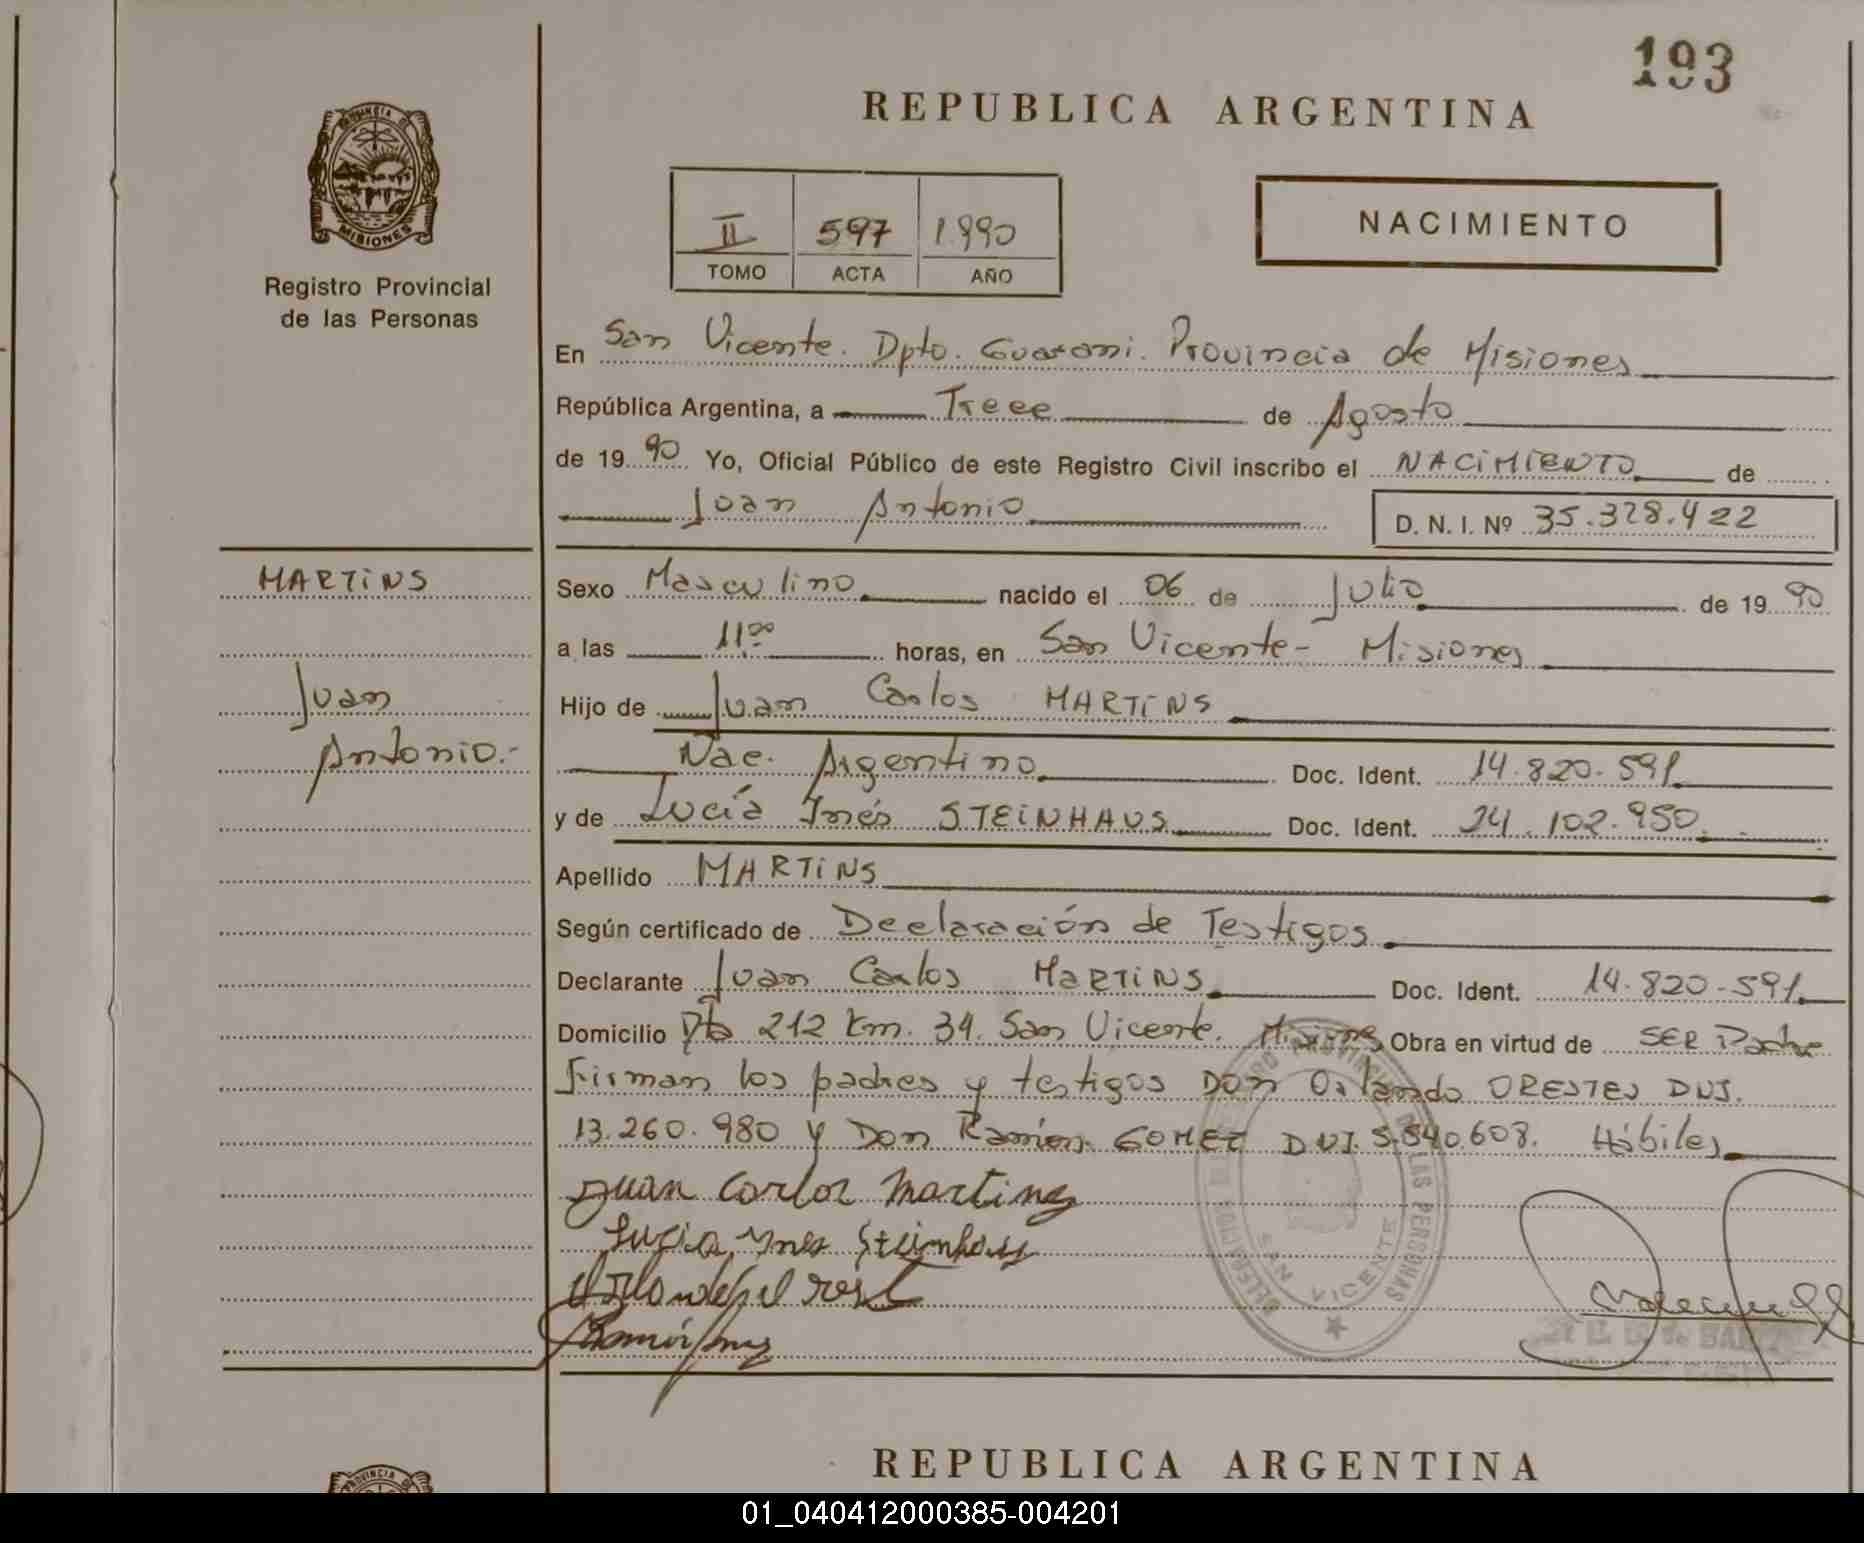 193
REPUBLICA ARGENTINA
PROVINCIA DE
MISIONES
Registro Provincial
de las Personas
II 597 1.990
TOMO ACTA AÑO
NACIMIENTO
En San Vicente. Dpto. Guarani. Provincia de Misiones
República Argentina, a Trece de Agosto
de 19 90 Yo, Oficial Público de este Registro Civil inscribo el NACIMIENTO de
Juan Antonio D. N. I. Nº 35.328.422
MARTINS
Juan
Antonio.-
Sexo Masculino nacido el 06 de Julio de 19 90
a las 11:00 horas, en San Vicente - Misiones
Hijo de Juan Carlos MARTINS
Nac. Argentino Doc. Ident. 14.820.591
y de Lucía Inés STEINHAUS Doc. Ident. 24.102.950
Apellido MARTINS
Según certificado de Declaración de Testigos
Declarante Juan Carlos MARTINS Doc. Ident. 14.820.591
Domicilio Rta 212 Km. 34. San Vicente. Misiones Obra en virtud de SER Padre
Firman los padres y testigos Don Orlando ORESTES DNI.
13.260.980 y Don Ramón GOMEZ DNI. 5.540.608. Hábiles
Juan Carlos Martins
Lucia Ynes Steinhaus
SAN VICENTE
REPUBLICA ARGENTINA
PROVINCIA DE
01_040412000385-004201